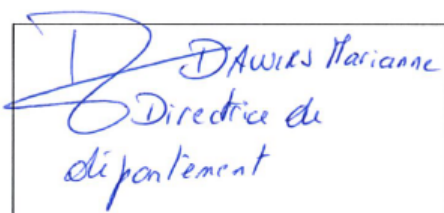 DAWIRS Marianne
Directrice de
département